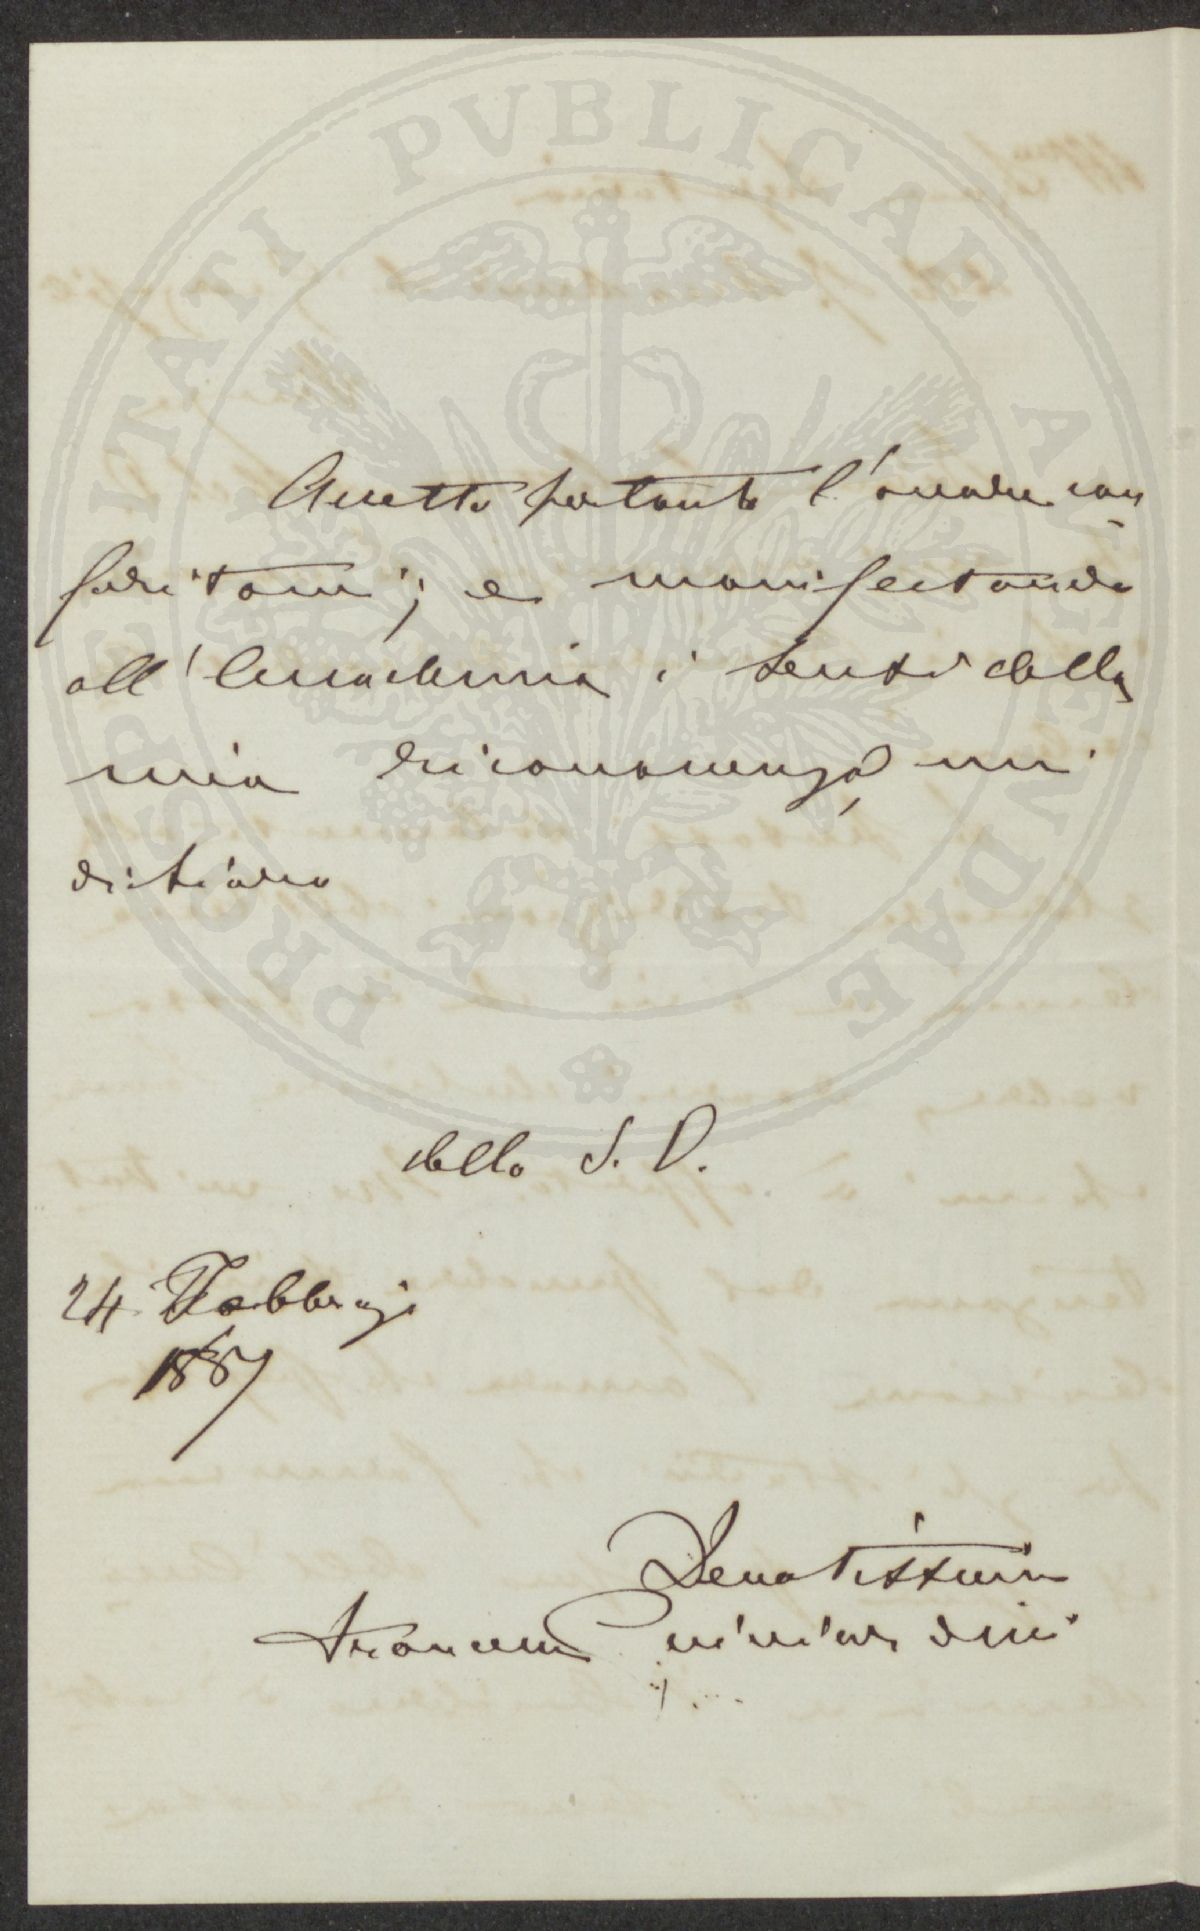 PROSPERITATI PUBLICAE AUGENDAE
Accetto pertanto l'onore con
feritomi; e manifestando
all'Accademia i sensi della
mia riconoscenza, mi
dichiaro
della S. V.
24 Febbrajo
1887
Devotissimo
Francesco Guicciardini